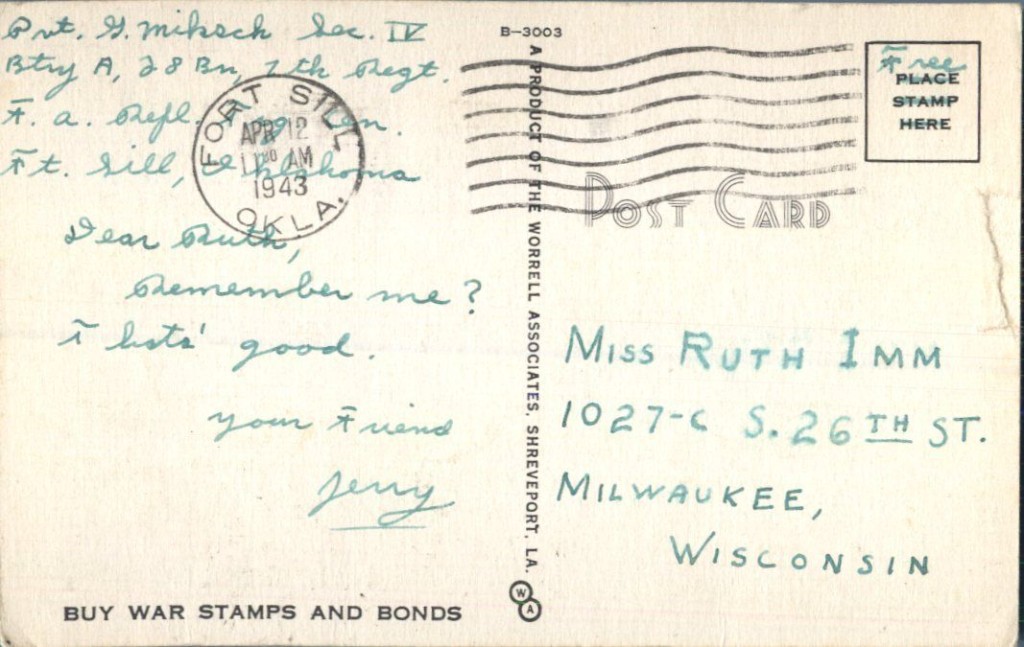 Pvt. G. Miksch Sec. IV
Btry A, 28 Bn, 7th Regt.
F. A. Repl.
Ft. Sill, Oklahoma
FORT SILL
APR 12
11 30 AM
1943
OKLA.
Dear Ruth,
Remember me?
good.
your Friend
Jerry
BUY WAR STAMPS AND BONDS
B-3003
A PRODUCT OF THE WORRELL ASSOCIATES. SHREVEPORT. LA.
W A
Free
PLACE
STAMP
HERE
POST CARD
MISS RUTH IMM
1027-C S. 26TH ST.
MILWAUKEE,
WISCONSIN